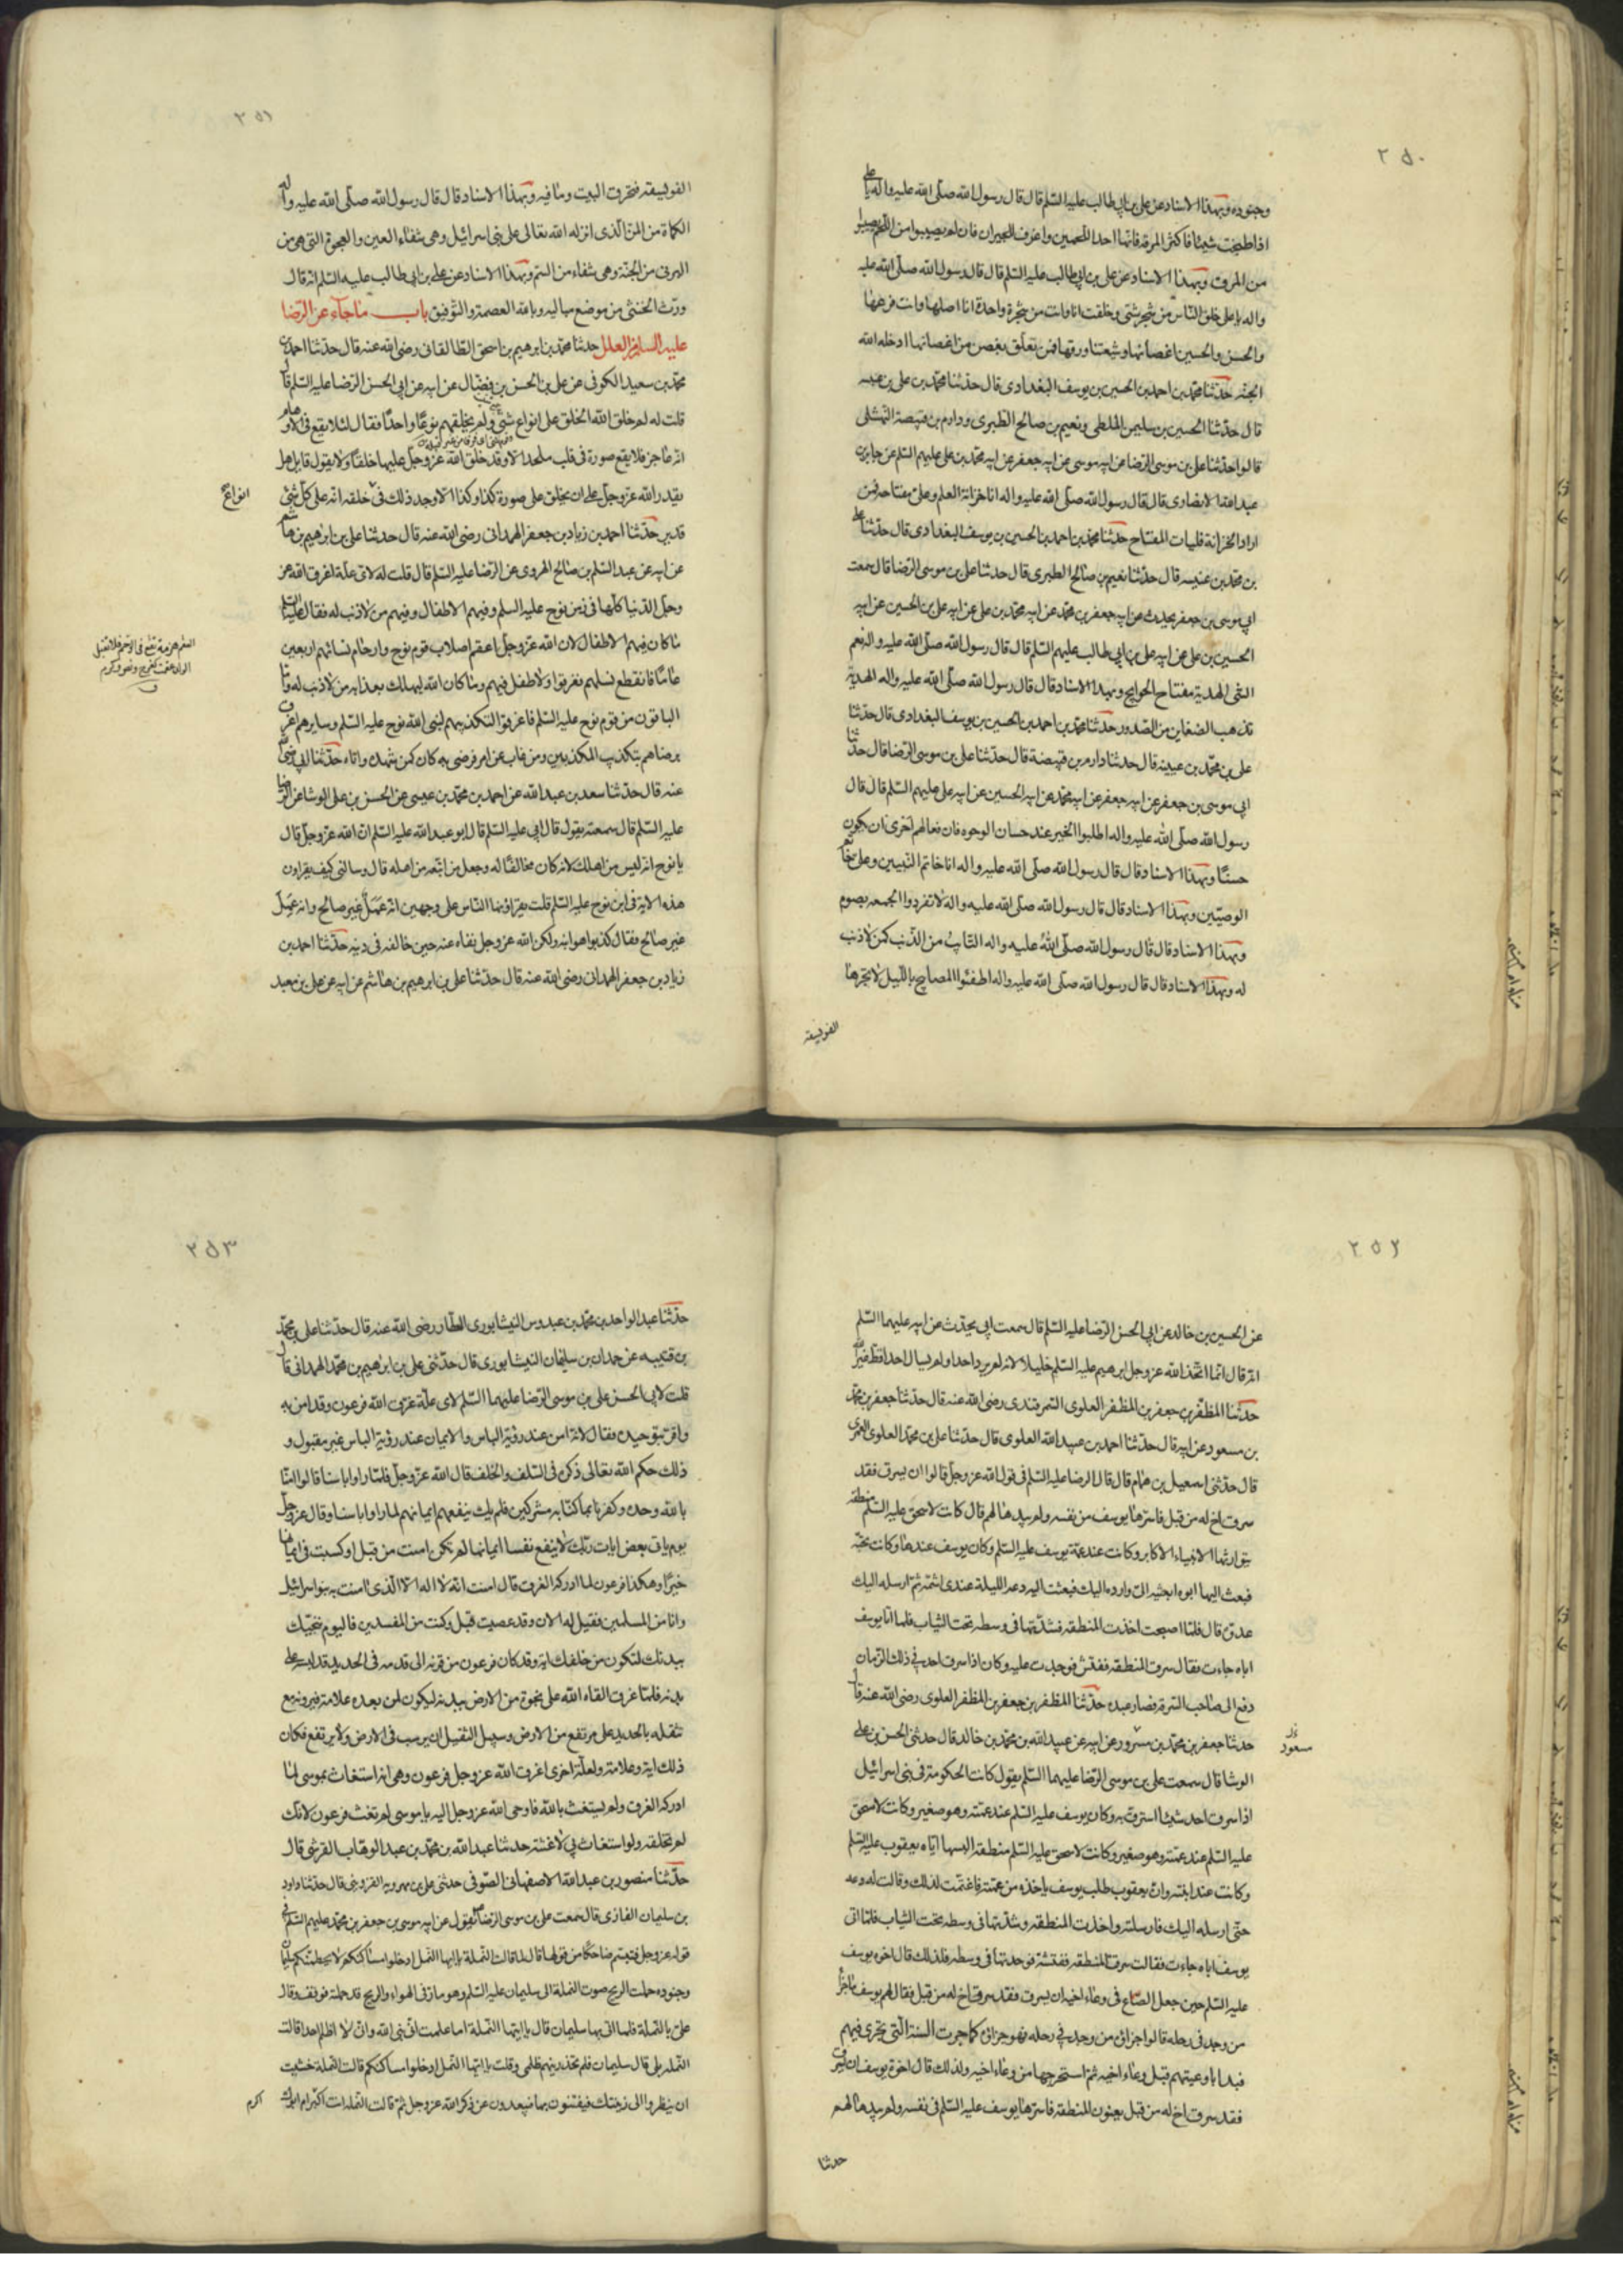 ٢٥٠
وجنوده وبهذا الاسناد عن علي بن ابي طالب عليه السلم قال قال رسول الله صلى الله عليه واله يا علي
اذا طبخت شيئا فاكثر المرقة فانها احد اللحمين واغرف للجيران فان لم يصيبوا من اللحم يصيبوا
من المرق وبهذا الاسناد عن علي بن ابي طالب عليه السلم قال قال رسول الله صلى الله عليه
واله يا علي خلق الناس من شجر شتى وخلقت انا وانت من شجرة واحدة انا اصلها وانت فرعها
والحسن والحسين اغصانها وشيعتنا ورقها فمن تعلق بغصن من اغصانها ادخله الله
الجنة حدثنا محمد بن احمد بن الحسين بن يوسف البغدادى قال حدثنا محمد بن على بن عنبسه
قال حدثنا الحسين بن سليمن الملطى ونعيم بن صالح الطبرى ودارم بن قبيصة النهشلى
قالوا حدثنا على بن موسى الرضا عن ابيه موسى عن ابيه جعفر عن ابيه محمد بن على عليهم السلم عن جابر بن
عبد الله الانصارى قال قال رسول الله صلى الله عليه واله انا خزانة العلم وعلى مفتاحه فمن
اراد الخزانة فليات المفتاح حدثنا محمد بن احمد بن الحسين بن يوسف البغدادى قال حدثنا على
بن محمد بن عنبسه قال حدثنا نعيم بن صالح الطبرى قال حدثنا على بن موسى الرضا قال سمعت
ابى موسى بن جعفر يحدث عن ابيه جعفر بن محمد عن ابيه محمد بن على عن ابيه على بن الحسين عن ابيه
الحسين بن على عن ابيه على بن ابى طالب عليهم السلم قال قال رسول الله صلى الله عليه واله نعم
الشى الهدية مفتاح الحوايج وبهذا الاسناد قال قال رسول الله صلى الله عليه واله الهدية
تذهب الضغاين من الصدور حدثنا محمد بن احمد بن الحسين بن يوسف البغدادى قال حدثنا
على بن محمد بن عيينه قال حدثنا دارم بن قبيصة قال حدثنا على بن موسى الرضا قال حدثنا
ابى موسى بن جعفر عن ابيه جعفر عن ابيه محمد عن ابيه الحسين عن ابيه على عليهم السلم قال قال
رسول الله صلى الله عليه واله اطلبوا الخير عند حسان الوجوه فان فعالهم احرى ان يكون
حسنا وبهذا الاسناد قال قال رسول الله صلى الله عليه واله انا خاتم النبيين وعلى خاتم
الوصيين وبهذا الاسناد قال قال رسول الله صلى الله عليه واله لا تفردوا الجمعه بصوم
وبهذا الاسناد قال قال رسول الله صلى الله عليه واله التايب من الذنب كمن لا ذنب
له وبهذا الاسناد قال قال رسول الله صلى الله عليه واله اطفئوا المصابيح بالليل لا تجرها
الفويسقه
٢٥١
الفويسقه فتحرق البيت وما فيه وبهذا الاسناد قال قال رسول الله صلى الله عليه واله
الكماة من المن الذى انزله الله تعالى على بنى اسرائيل وهى شفاء العين والعجوة التى هى من
البرنى من الجنة وهى شفاء من السم وبهذا الاسناد عن على بن ابى طالب عليه السلم انه قال
ورث الخنثى من موضع مباله وبالله العصمة والتوفيق باب ما جاء عن الرضا
عليه السلام من العلل حدثنا محمد بن ابرهيم بن اسحق الطالقانى رضى الله عنه قال حدثنا احمد بن
محمد بن سعيد الكوفى عن على بن الحسن بن فضال عن ابيه عن ابى الحسن الرضا عليه السلم قال
قلت له لم خلق الله الخلق على انواع شتى ولم يخلقهم نوعا واحدا فقال لئلا يقع فى الاوهام
انه عاجز فلا يقع صورة فى قلب ملحد الا وقد خلق الله عز وجل عليها خلقا ولا يقول قايل هل
يقدر الله عز وجل على ان يخلق على صورة كذا وكذا الا وجد ذلك فى خلقه انه على كل شئ
انواع
قدير حدثنا احمد بن زياد بن جعفر الهمدانى رضى الله عنه قال حدثنا على بن ابرهيم بن هاشم
عن ابيه عن عبد السلم بن صالح الهروى عن الرضا عليه السلم قال قلت له لاى علة اغرق الله عز
وجل الدنيا كلها فى زمن نوح عليه السلم وفيهم الاطفال وفيهم من لا ذنب له فقال عليه السلم
ما كان فيهم الاطفال لان الله عز وجل اعقم اصلاب قوم نوح وارحام نسائهم اربعين
عاما فانقطع نسلهم فغرقوا ولا طفل فيهم وما كان الله ليهلك بعذابه من لا ذنب له واما
الباقون من قوم نوح عليه السلم فاغرقوا لتكذيبهم لنبى الله نوح عليه السلم وسايرهم اغرق
برضاهم بتكذيب المكذبين ومن غاب عن امر فرضى به كان كمن شهده واتاه حدثنا ابى رضى الله
عنه قال حدثنا سعد بن عبد الله عن احمد بن محمد بن عيسى عن الحسن بن على الوشا عن الرضا
عليه السلم قال سمعته يقول قال ابى عليه السلم قال ابو عبد الله عليه السلم ان الله عز وجل قال
يا نوح انه ليس من اهلك لانه كان مخالفا له وجعل من اتبعه من اهله قال وسالنى كيف يقراون
هذه الاية فى ابن نوح عليه السلم قلت يقراؤنها الناس على وجهين انه عمل غير صالح وانه عمل
غير صالح فقال كذبوا هو ابنه ولكن الله عز وجل نفاه عنه حين خالفه فى دينه حدثنا احمد بن
زياد بن جعفر الهمدانى رضى الله عنه قال حدثنا على بن ابرهيم بن هاشم عن ابيه عن على بن معبد
٢٥٢
عن الحسين بن خالد عن ابى الحسن الرضا عليه السلم قال سمعت ابى يحدث عن ابيه عليهما السلم
انه قال انما اتخذ الله عز وجل ابرهيم عليه السلم خليلا لانه لم يرد احدا ولم يسال احدا قط غير الله
حدثنا المظفر بن جعفر بن المظفر العلوى السمرقندى رضى الله عنه قال حدثنا جعفر بن محمد
بن مسعود عن ابيه قال حدثنا احمد بن عبيد الله العلوى قال حدثنا على بن محمد العلوى العمرى
قال حدثنى اسمعيل بن همام قال قال الرضا عليه السلم فى قول الله عز وجل قالوا ان يسرق فقد
سرق اخ له من قبل فاسرها يوسف من نفسه ولم يبدها لهم قال كانت لاسحق عليه السلم منطقه
يتوارثها الانبياء الاكابر وكانت عند عمة يوسف عليه السلم وكان يوسف عندها وكانت تحبه
فبعث اليها ابوه ابعثيه الى وارده اليك فبعثت اليه دعه الليلة عندى اشمه ثم ارسله اليك
غدوة قال فلما اصبحت اخذت المنطقة فشدتها فى وسطه تحت الثياب فلما اتا يوسف
اباه جاءت فقال سرق المنطقه ففتش فوجدت عليه وكان اذا سرق احد فى ذلك الزمان
دفع الى صاحب السرقة فصار عبده حدثنا المظفر بن جعفر بن المظفر العلوى رضى الله عنه قال
حدثنا جعفر بن محمد بن مسرور عن ابيه عن عبيد الله بن محمد بن خالد قال حدثنى الحسن بن على
مسعود
الوشا قال سمعت على بن موسى الرضا عليهما السلم يقول كانت الحكومة فى بنى اسرائيل
اذا سرق احد شيئا استرق به وكان يوسف عليه السلم عند عمته وهو صغير وكانت لاسحق
عليه السلم عند عمته وهو صغير وكانت لاسحق عليه السلم منطقة البسها اياه يعقوب عليه السلم
وكانت عند ابنته وان يعقوب طلب يوسف ياخذه من عمته فاغتمت لذلك وقالت له دعه
حتى ارسله اليك فارسلته واخذت المنطقه وشدتها فى وسطه تحت الثياب فلما اتى
يوسف اباه جاءت فقالت سرق المنطقه ففتشته فوجدتها فى وسطه فلذلك قال اخوه يوسف
عليه السلم حين جعل الصاع فى وعاء اخيه ان يسرق فقد سرق اخ له من قبل فقال لهم يوسف ما جزاء
من وجد فى رحله قالوا جزاؤه من وجد فى رحله فهو جزاؤه كما جرت السنة التى تجرى فيهم
فبدا باوعيتهم قبل وعاء اخيه ثم استخرجها من وعاء اخيه ولذلك قال اخوة يوسف ان يسرق
فقد سرق اخ له من قبل يعنون المنطقه فاسرها يوسف عليه السلم فى نفسه ولم يبدها لهم
حدثنا
٢٥٣
حدثنا عبد الواحد بن محمد بن عبدوس النيشابورى العطار رضى الله عنه قال حدثنا على بن محمد
بن قتيبه عن حمدان بن سليمان النيشابورى قال حدثنى على بن ابرهيم بن محمد الهمدانى قال
قلت لابى الحسن على بن موسى الرضا عليهما السلم لاى علة غرق الله فرعون وقد امن به
واقر بتوحيده فقال لانه امن عند رؤية الباس والايمان عند رؤية الباس غير مقبول و
ذلك حكم الله تعالى ذكره فى السلف والخلف قال الله عز وجل فلما راوا باسنا قالوا امنا
بالله وحده وكفرنا بما كنا به مشركين فلم يك ينفعهم ايمانهم لما راوا باسنا وقال عز وجل
يوم ياتى بعض ايات ربك لا ينفع نفسا ايمانها لم تكن امنت من قبل او كسبت فى ايمانها
خيرا وهكذا فرعون لما ادركه الغرق قال امنت انه لا اله الا الذى امنت به بنوا اسرائيل
وانا من المسلمين فقيل له الان وقد عصيت قبل وكنت من المفسدين فاليوم ننجيك
ببدنك لتكون من خلفك اية وقد كان فرعون من قرنه الى قدمه فى الحديد قد لبسه على
بدنه فلما غرق القاه الله على نجوة من الارض ببدنه ليكون لمن بعده علامة فيرونه مع
تثقله بالحديد على مرتفع من الارض وسبيل الثقيل ان يرسب فى الارض ولا يرتفع فكان
ذلك اية وعلامة ولعلة اخرى اغرق الله عز وجل فرعون وهى انه استغاث بموسى لما
ادركه الغرق ولم يستغث بالله فاوحى الله عز وجل اليه يا موسى لم تغث فرعون لانك
لم تخلقه ولو استغاث بى لاغثته حدثنا عبد الله بن محمد بن عبد الوهاب القرشى قال
حدثنا منصور بن عبد الله الاصفهانى الصوفى حدثنى على بن مهرويه القزوينى قال حدثنا داود
بن سليمان الغازى قال سمعت على بن موسى الرضا يقول عن ابيه موسى بن جعفر بن محمد عليهم السلم فى
قوله عز وجل فتبسم ضاحكا من قولها قال لما قالت النملة يا ايها النمل ادخلوا مساكنكم لا يحطمنكم سليمان
وجنوده حملت الريح صوت النملة الى سليمان عليه السلم وهو مار فى الهواء والريح قد حملته فوقف وقال
على بالنملة فلما اتى بها سليمان قال يا ايتها النملة اما علمت انى نبى الله وانى لا اظلم احدا قالت
النمله بلى قال سليمان فلم تحذرينهم ظلمى وقلت يا ايها النمل ادخلوا مساكنكم قالت النملة خشيت
ان ينظروا الى زينتك فيفتنون بها فيبعدون عن ذكر الله عز وجل ثم قالت النملة انت اكبر ام ابوك
اكرم